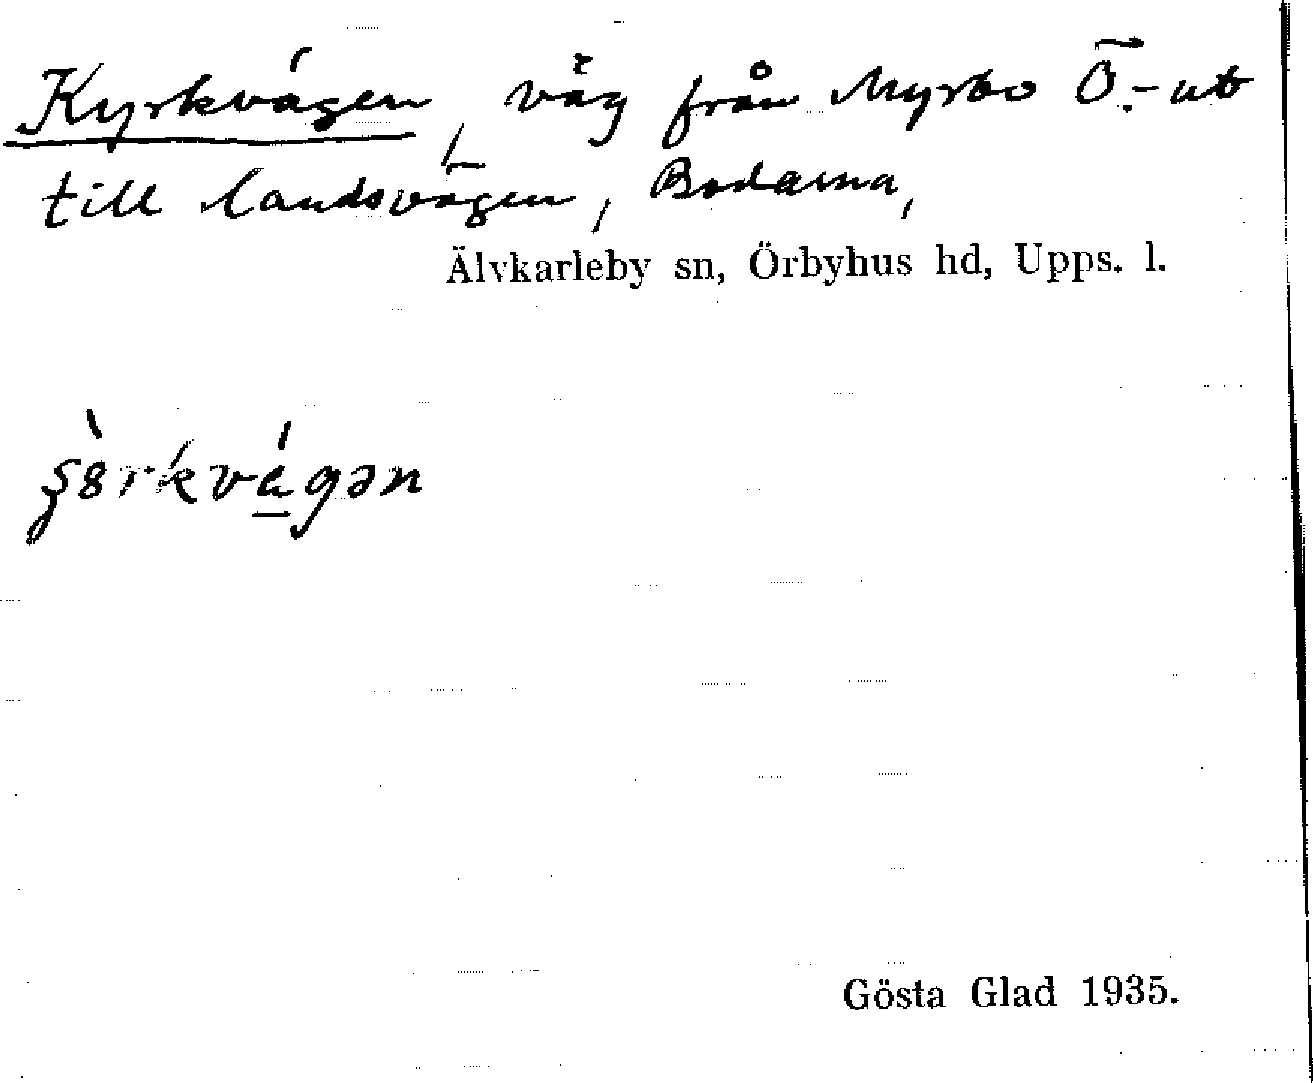 Kyrkvägen, väg från Myrbo Ö.-ut
till landsvägen, Bodarna,
Älvkarleby sn, Örbyhus hd, Upps. l.
Gösta Glad 1935.